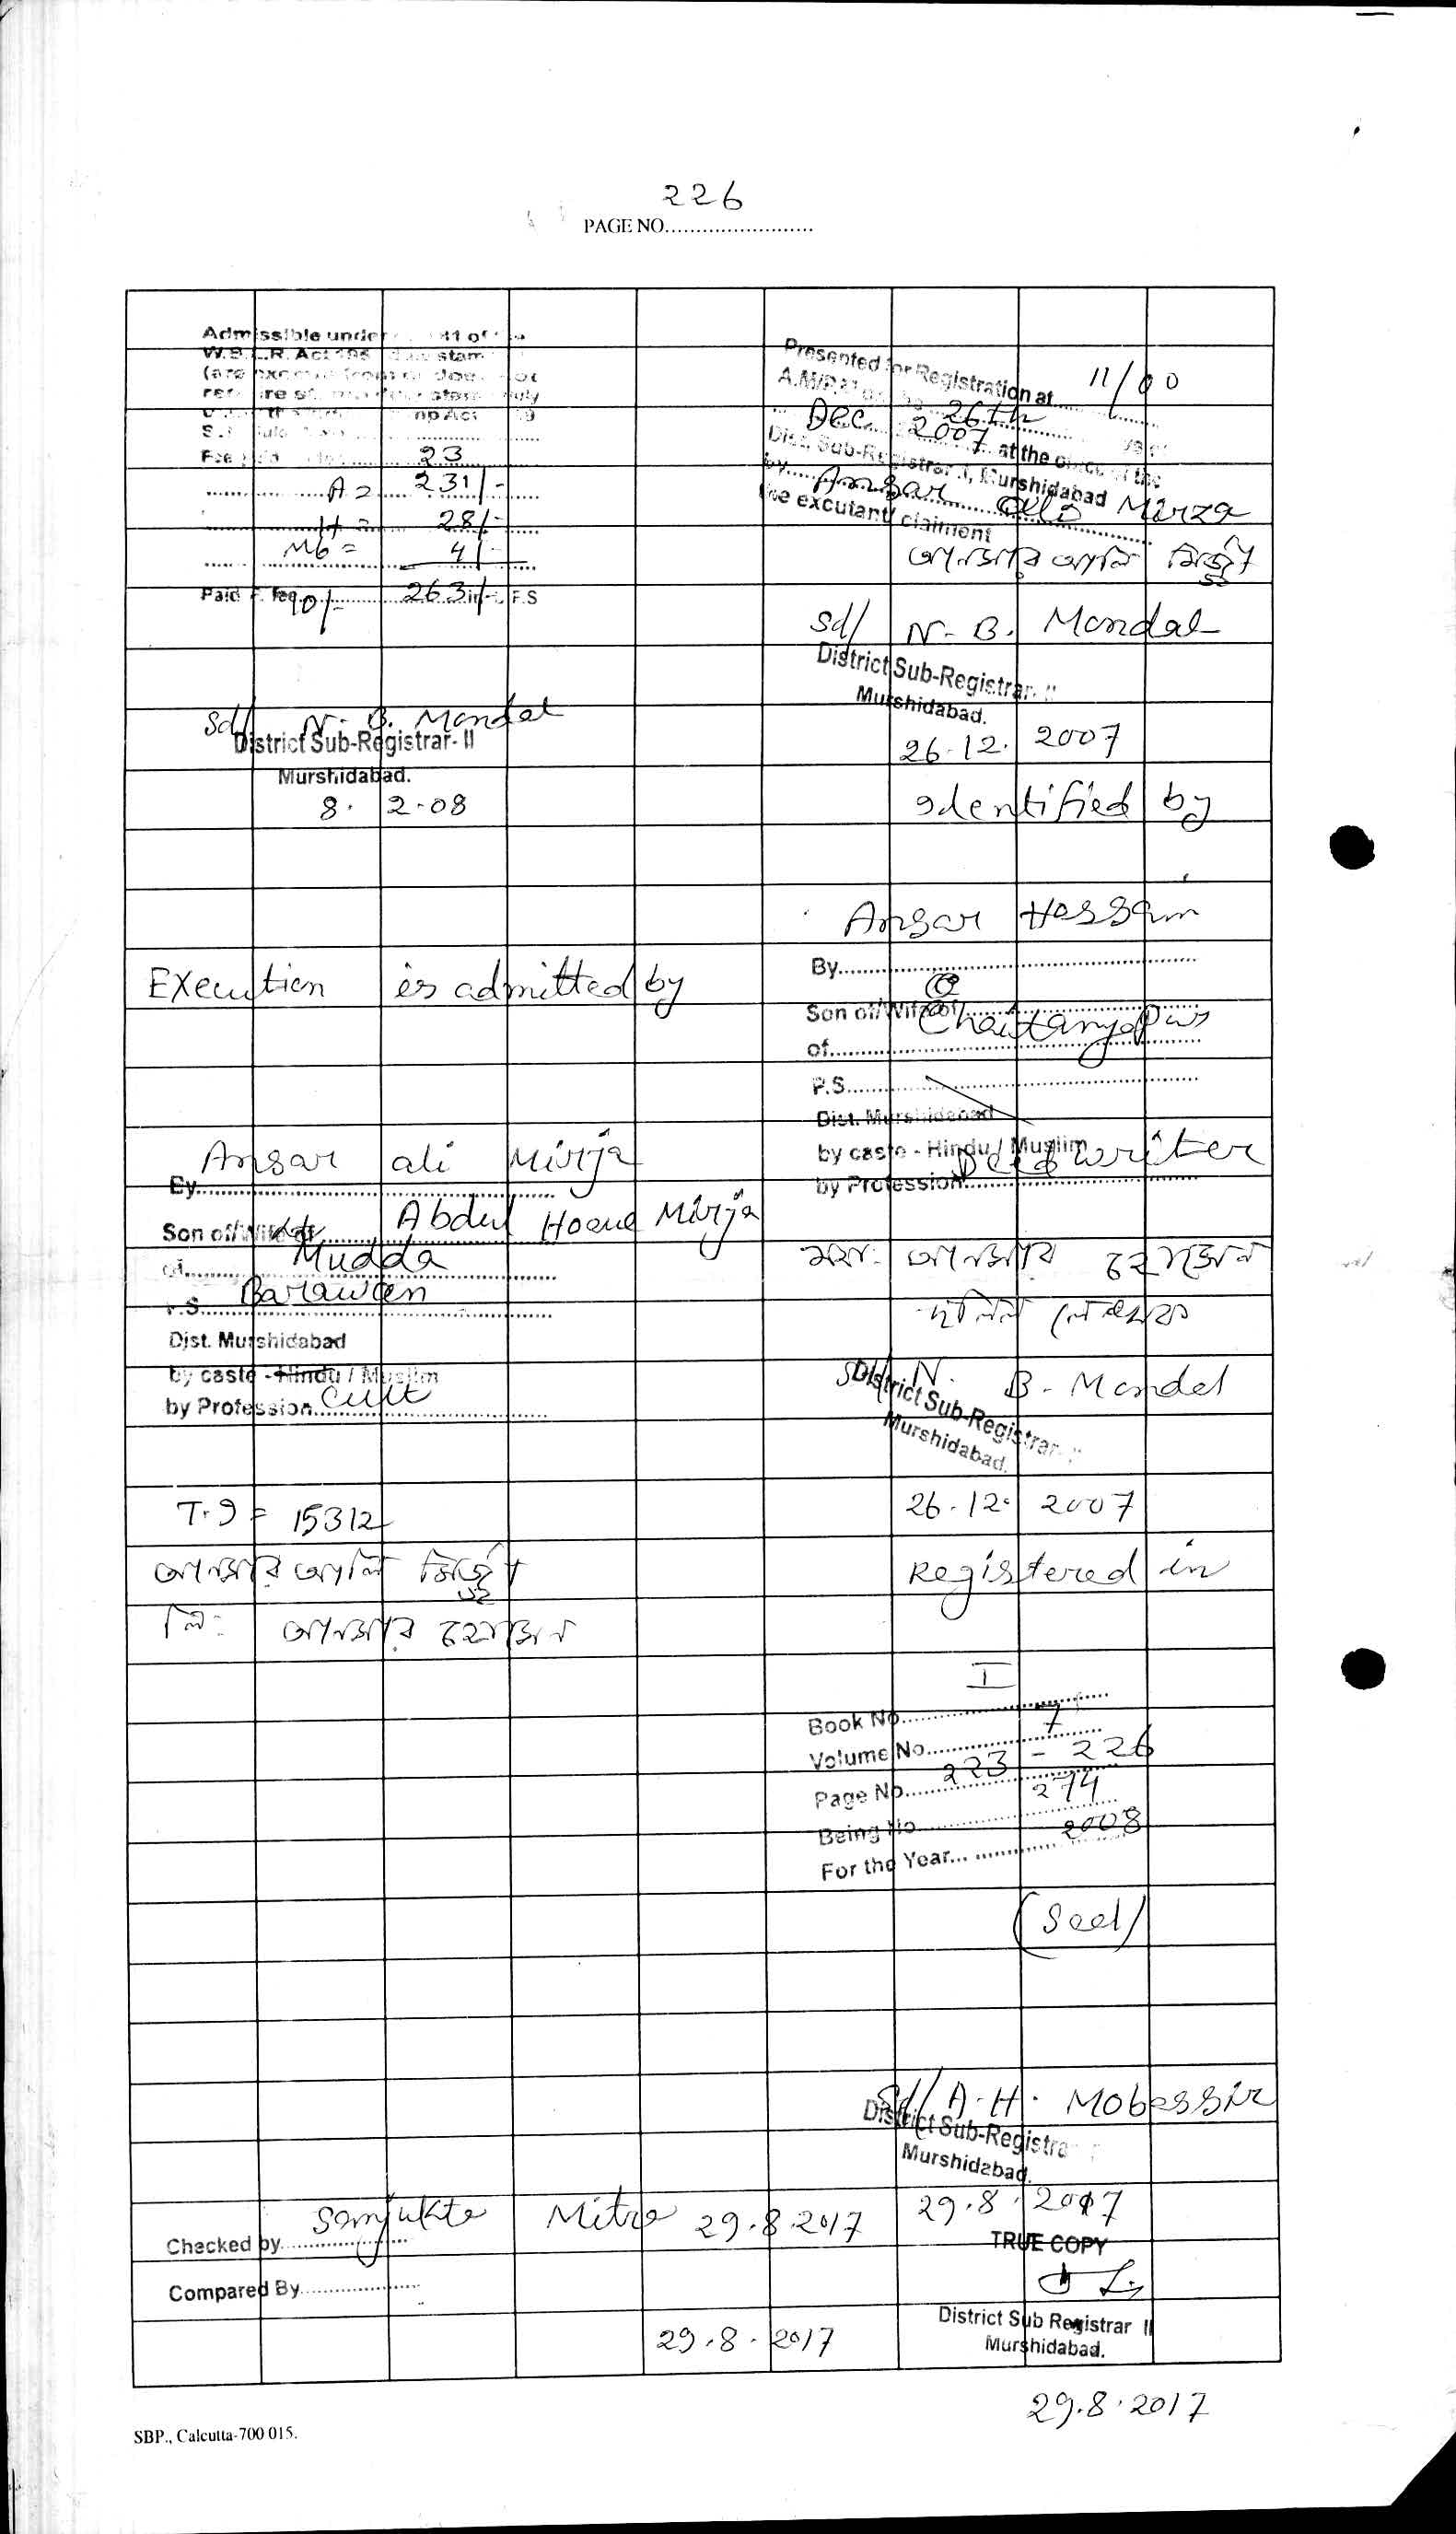 226
PAGE NO.
Admissible under
W.B.L.R. Act
Fee 23
A = 231/-
H = 28/-
Mb = 4/-
Paid F. fee 10/- 263/- F.S
Sd/ N. B. Mondal
District Sub-Registrar-II
Murshidabad.
8. 2-08
Execution is admitted by
Ansar ali Mirja
By
Son of/Wife of Lt Abdul Hoque Mirja
of Mudda
P.S. Barawan
Dist. Murshidabad
by caste - Hindu / Muslim
by Profession Cult
15312
আনসার আলি মির্জা
লি: আনসার হোসেন
Presented for Registration at 11/00
A.M/P.M 26th
Dec 2007 at the office of the
Dist. Sub-Registrar II, Murshidabad
by Ansar Ali Mirza
the excutant/ claiment
আনসার আলি মির্জা
Sd/ N. B. Mondal
District Sub-Registrar-II
Murshidabad.
26-12. 2007
Identified by
Ansar Hossain
By
Son of/Wife of
of Chaitanyapur
P.S.
Dist. Murshidabad
by caste - Hindu / Muslim
by Profession Deed writer
আনসার হোসেন
দলিল লেখক
Sd/ N. B. Mondal
District Sub-Registrar-II
Murshidabad.
26-12. 2007
Registered in
Book No. I
Volume No. 7
Page No. 223 - 226
Being No. 274
For the Year 2008
(Seal)
Sd/ A. H. Mobassir
District Sub-Registrar
Murshidabad.
29.8.2017
Checked by Sanjukta Mitra 29.8.2017
TRUE COPY
Compared By
29.8.2017
District Sub Registrar II
Murshidabad.
29.8.2017
SBP., Calcutta-700 015.